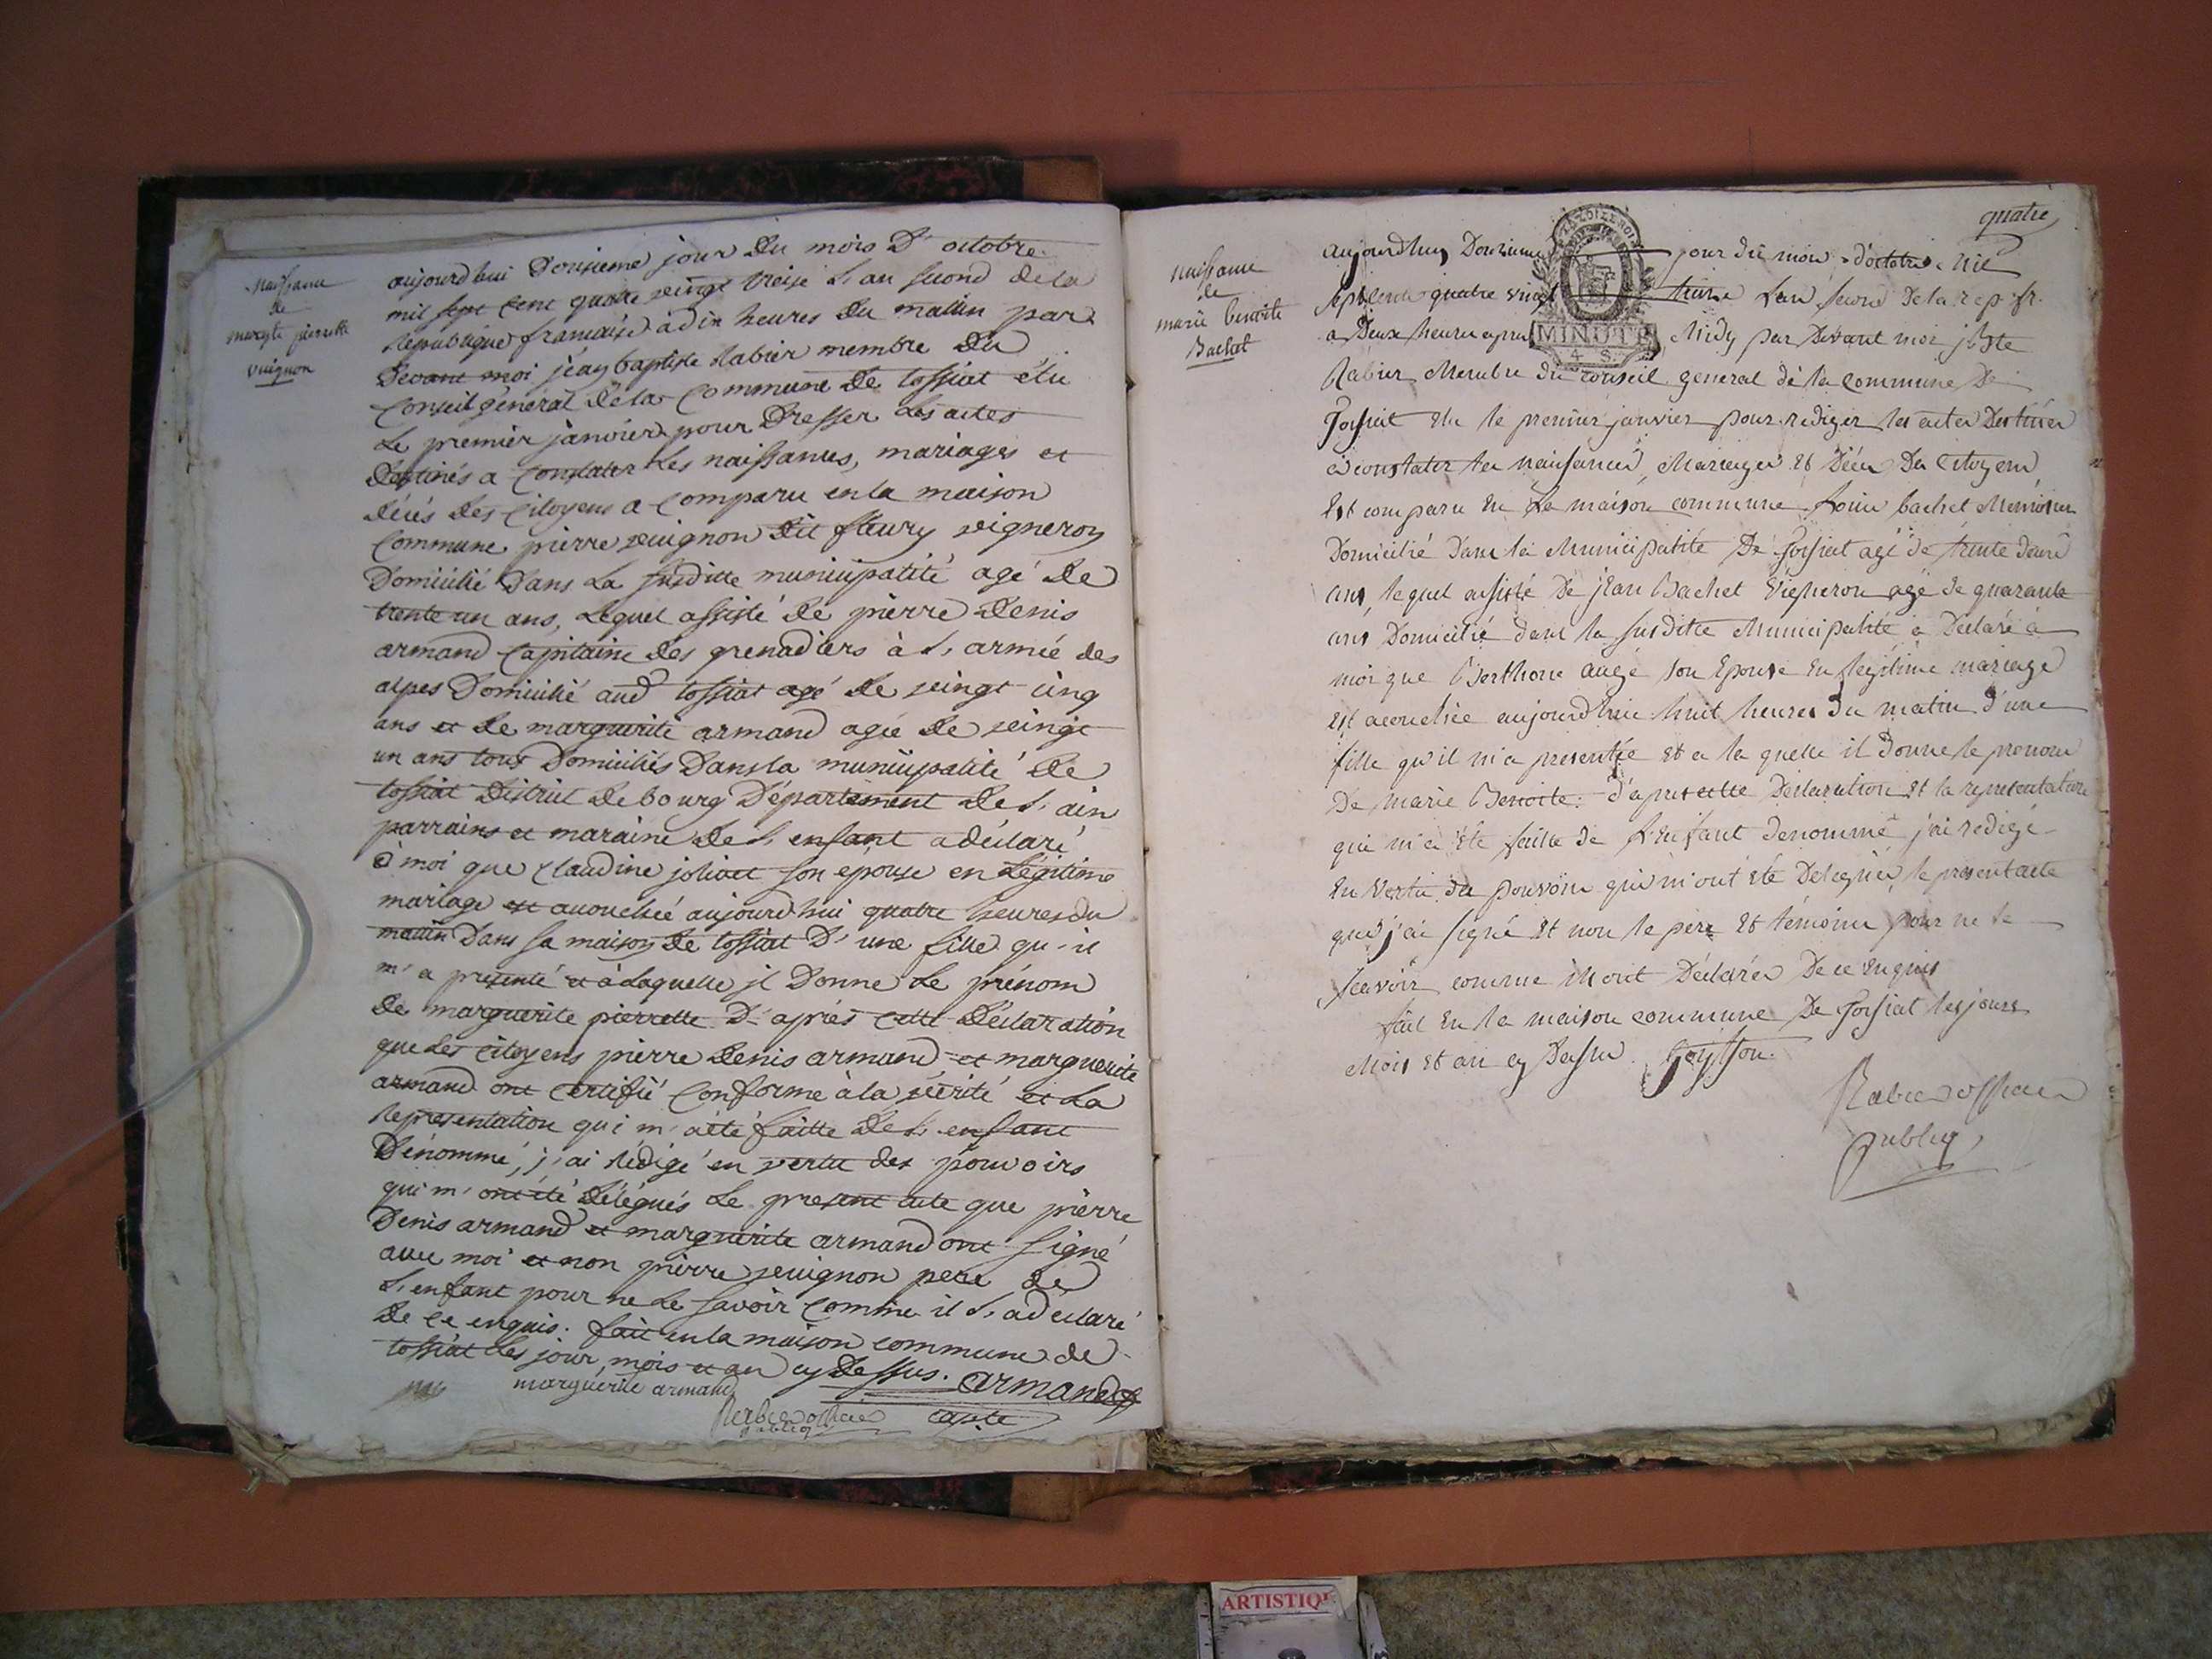 naissance
de
margte pierrette
vuignon
aujourdhui douzieme jour du mois d'octobre
mil sept cent quatre vingt treize l'an second de la
republique francaise à dix heures du matin par
devant moi jean baptiste rabier membre du
conseil général de la commune de tossiat élu
le premier janvier pour dresser les actes
destinés a constater les naissances, mariages et
décès des citoyens a comparu en la maison
commune pierre vuignon dit fleury vigneron
domicilié dans la susditte municipalité agé de
trente un ans, lequel assisté de pierre denis
armand capitaine des grenadiers à l'armée des
alpes domicilié aud tossiat agé de vingt cinq
ans et de marguerite armand agée de vingt
un ans tous domiciliés dans la municipalité de
tossiat district de bourg département de l'ain
parrains et maraine de l'enfant a déclaré
à moi que claudine jolivet son épouse en légitime
mariage est acouchée aujourdhui quatre heures du
matin dans sa maison de tossiat d'une fille qu'il
m'a presenté et à laquelle il donne le prénom
de marguerite pierrette d'après cette déclaration
que les citoyens pierre denis armand et marguerite
armand ont certifié conforme à la vérité et la
représentation qui m'a été faitte de l'enfant
dénommé, j'ai rédigé en vertu des pouvoirs
qui m'ont été délégués le present acte que pierre
denis armand et marguerite armand ont signé
avec moi et non pierre vuignon pere de
l'enfant pour ne le savoir comme il l'a déclaré
de ce enquis. fait en la maison commune de
tossiat les jour, mois et an cy dessus. armand
marguerite armand
capte
Rabier officier
publicq
quatre
naissance
de
marie benoite
Bachet
MINUTE
4 S.
aujourdhuy Douzieme jour du mois d'octobre mil
sept cents quatre vingt treize L'an second de la rep. fr.
a Deux heures apres Midy par Devant moi j Bte
Rabier Membre du Conseil general de la commune De
Tossiat elu le premier janvier pour rediger les actes Destinés
a constater les naissances, Mariages et Décès Des Citoyens,
Est comparu en la maison commune Louis bachet Menuisier
Domicilié dans la Municipalité De Tossiat agé de trente deux
ans, lequel assisté De jean Bachet Vigneron agé de quarante
ans Domicilié dans la susditte Municipalité a Déclaré à
moi que Berthone augé son Epouse en legitime mariage
est acouchée aujourdhui huit heures du matin d'une
fille qu'il m'a presentée et a la quelle il Donne le prenom
De marie Benoite: d'apres cette Déclaration et la representation
qui m'a été faitte de l'Enfant denommé j'ai redigé
En Vertu des pouvoirs qui m'ont été Délegués, le present acte
que j'ai signé et non le pere et témoins pour ne le
scavoir comme ils ont Déclarés De ce Enquis
fait en la maison commune De Tossiat les jours
Mois et an cy Dessus.
Rabier officier
publicq
ARTISTIQ